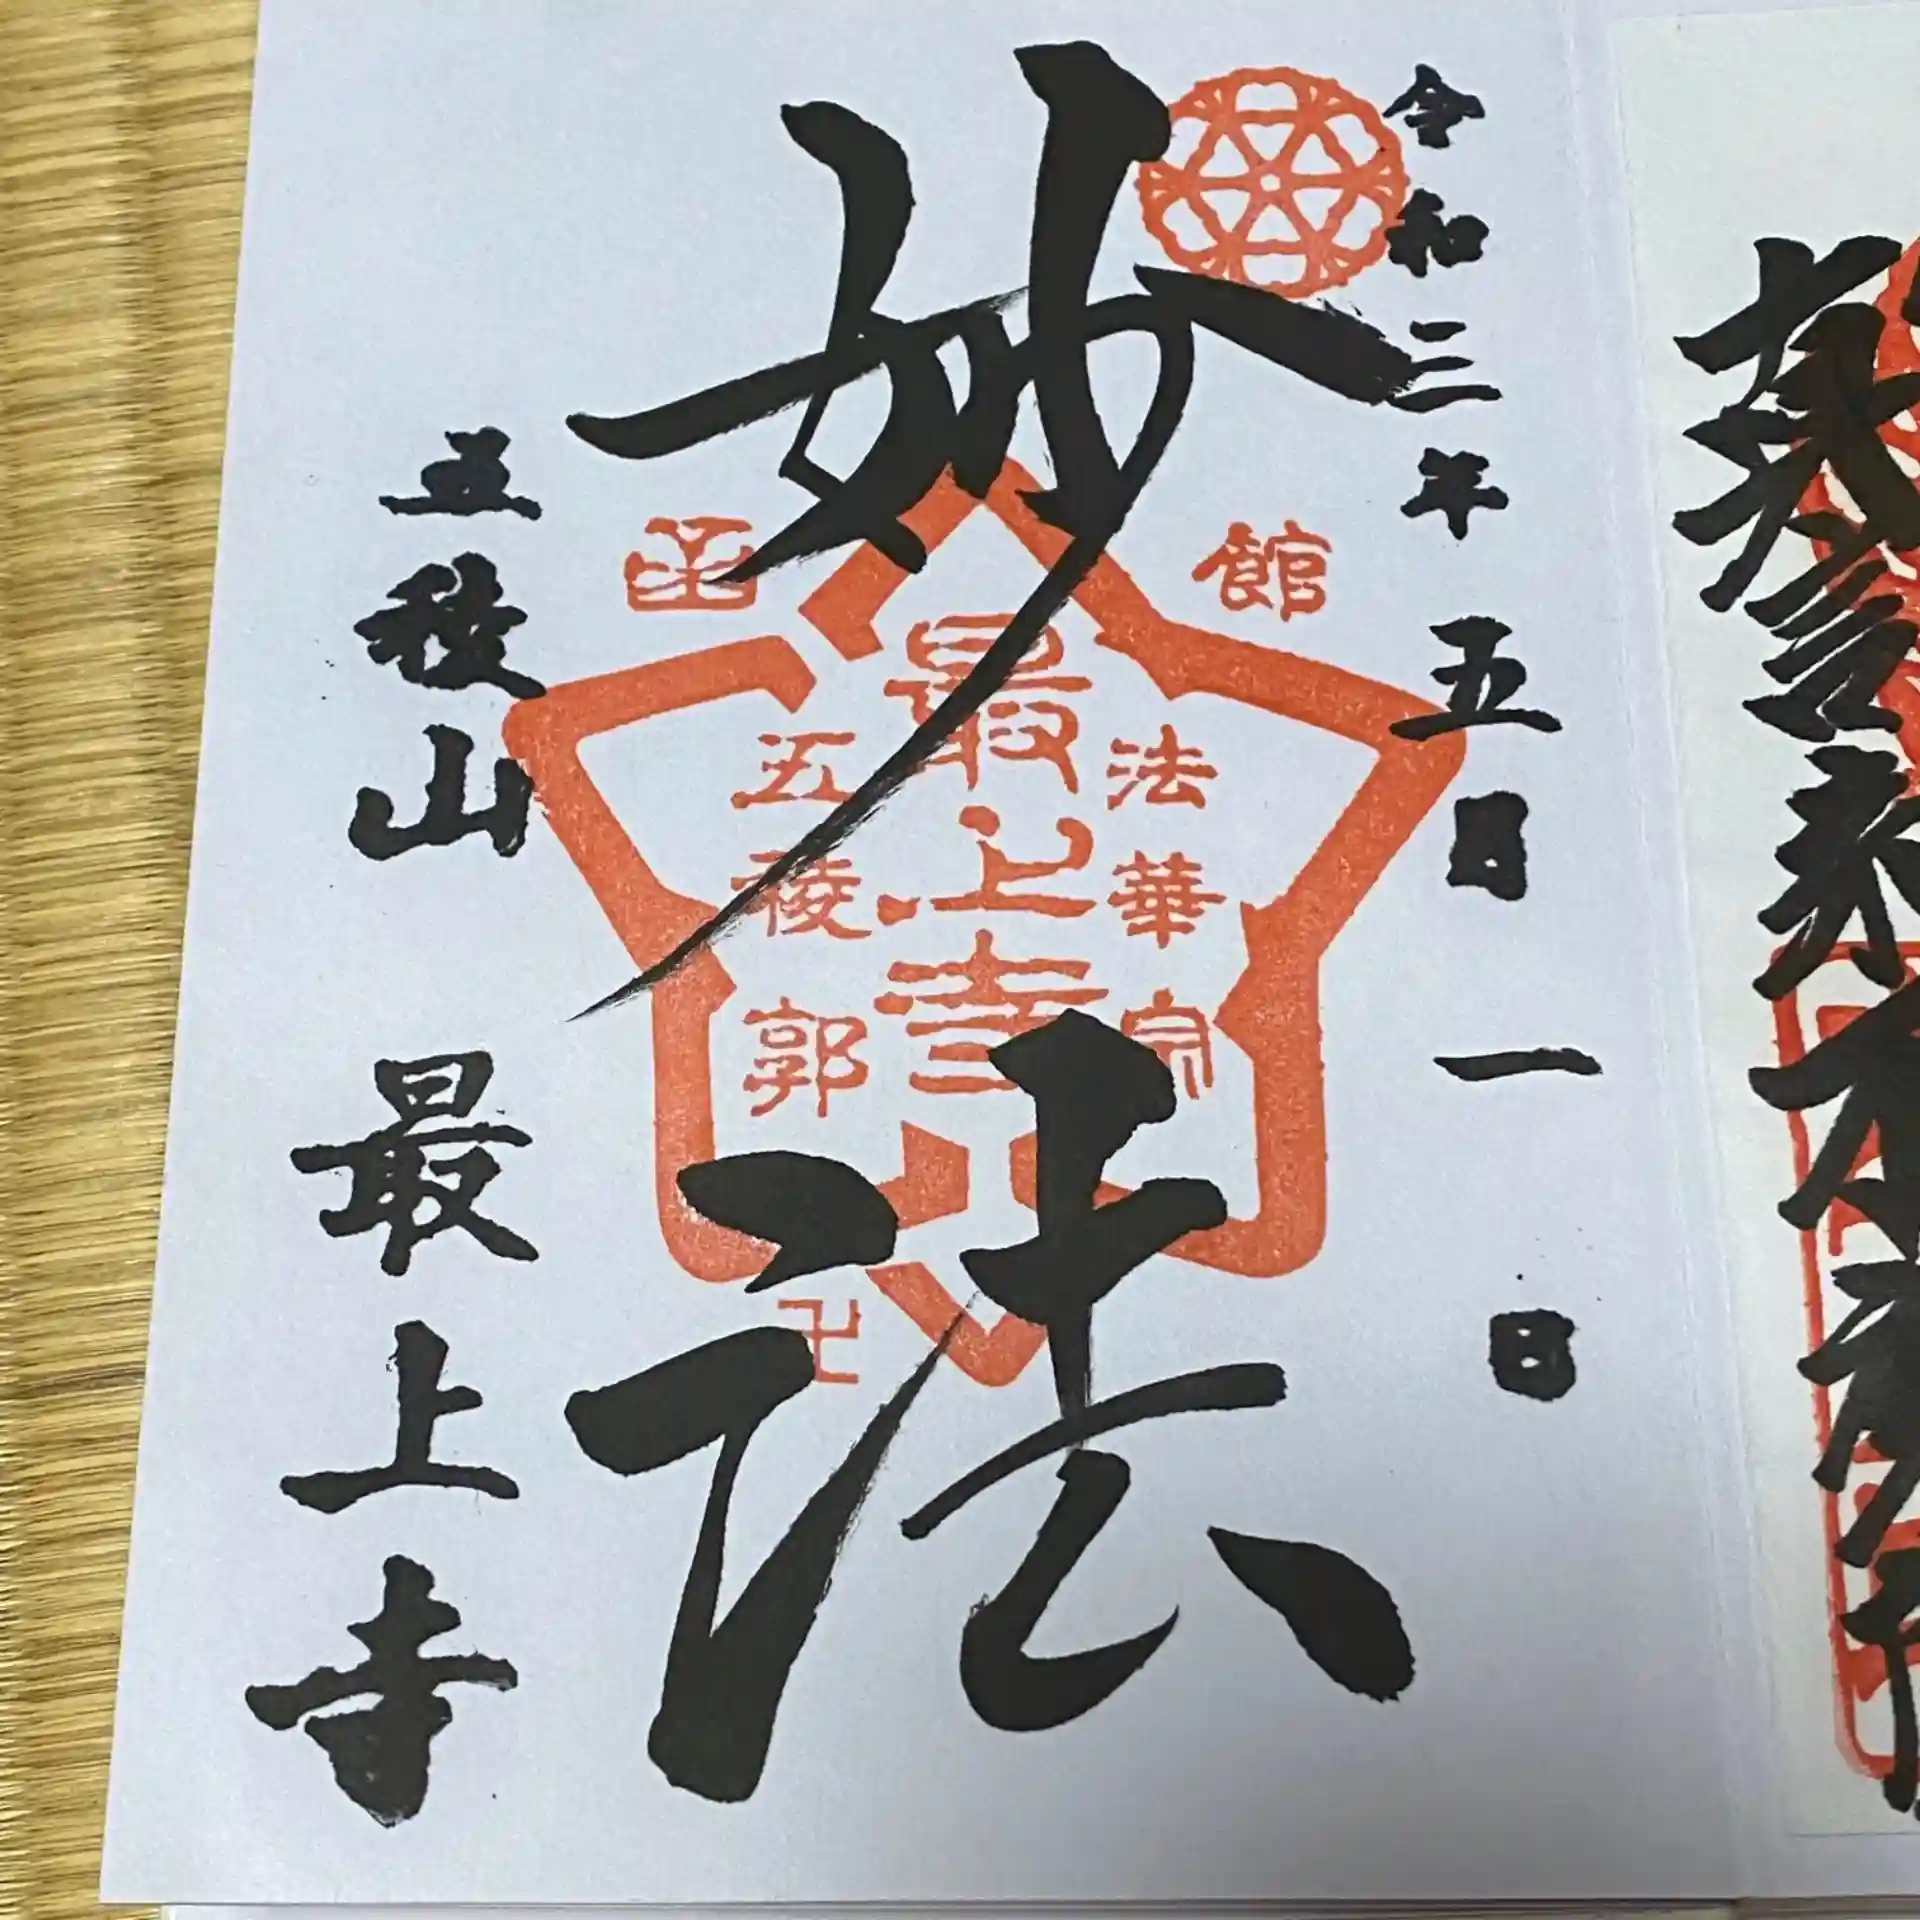 令和三年五月一日
妙法
函館
法華宗
最上寺
五稜郭
卍
五稜山 最上寺